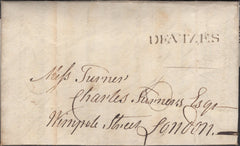 DEVIZES
Miss Turner
Charles Turners Esqr
Wimpole Street London